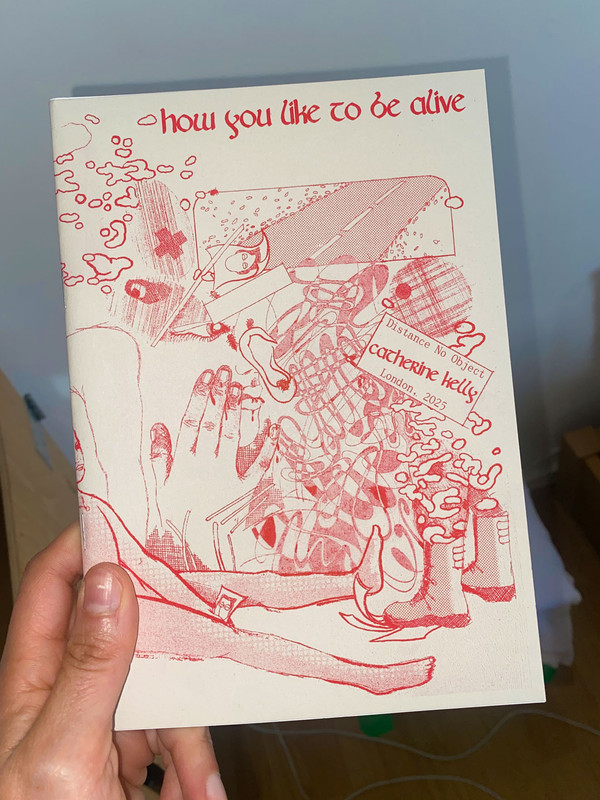 how you like to be alive
Distance No Object
catherine kelly
London, 2025